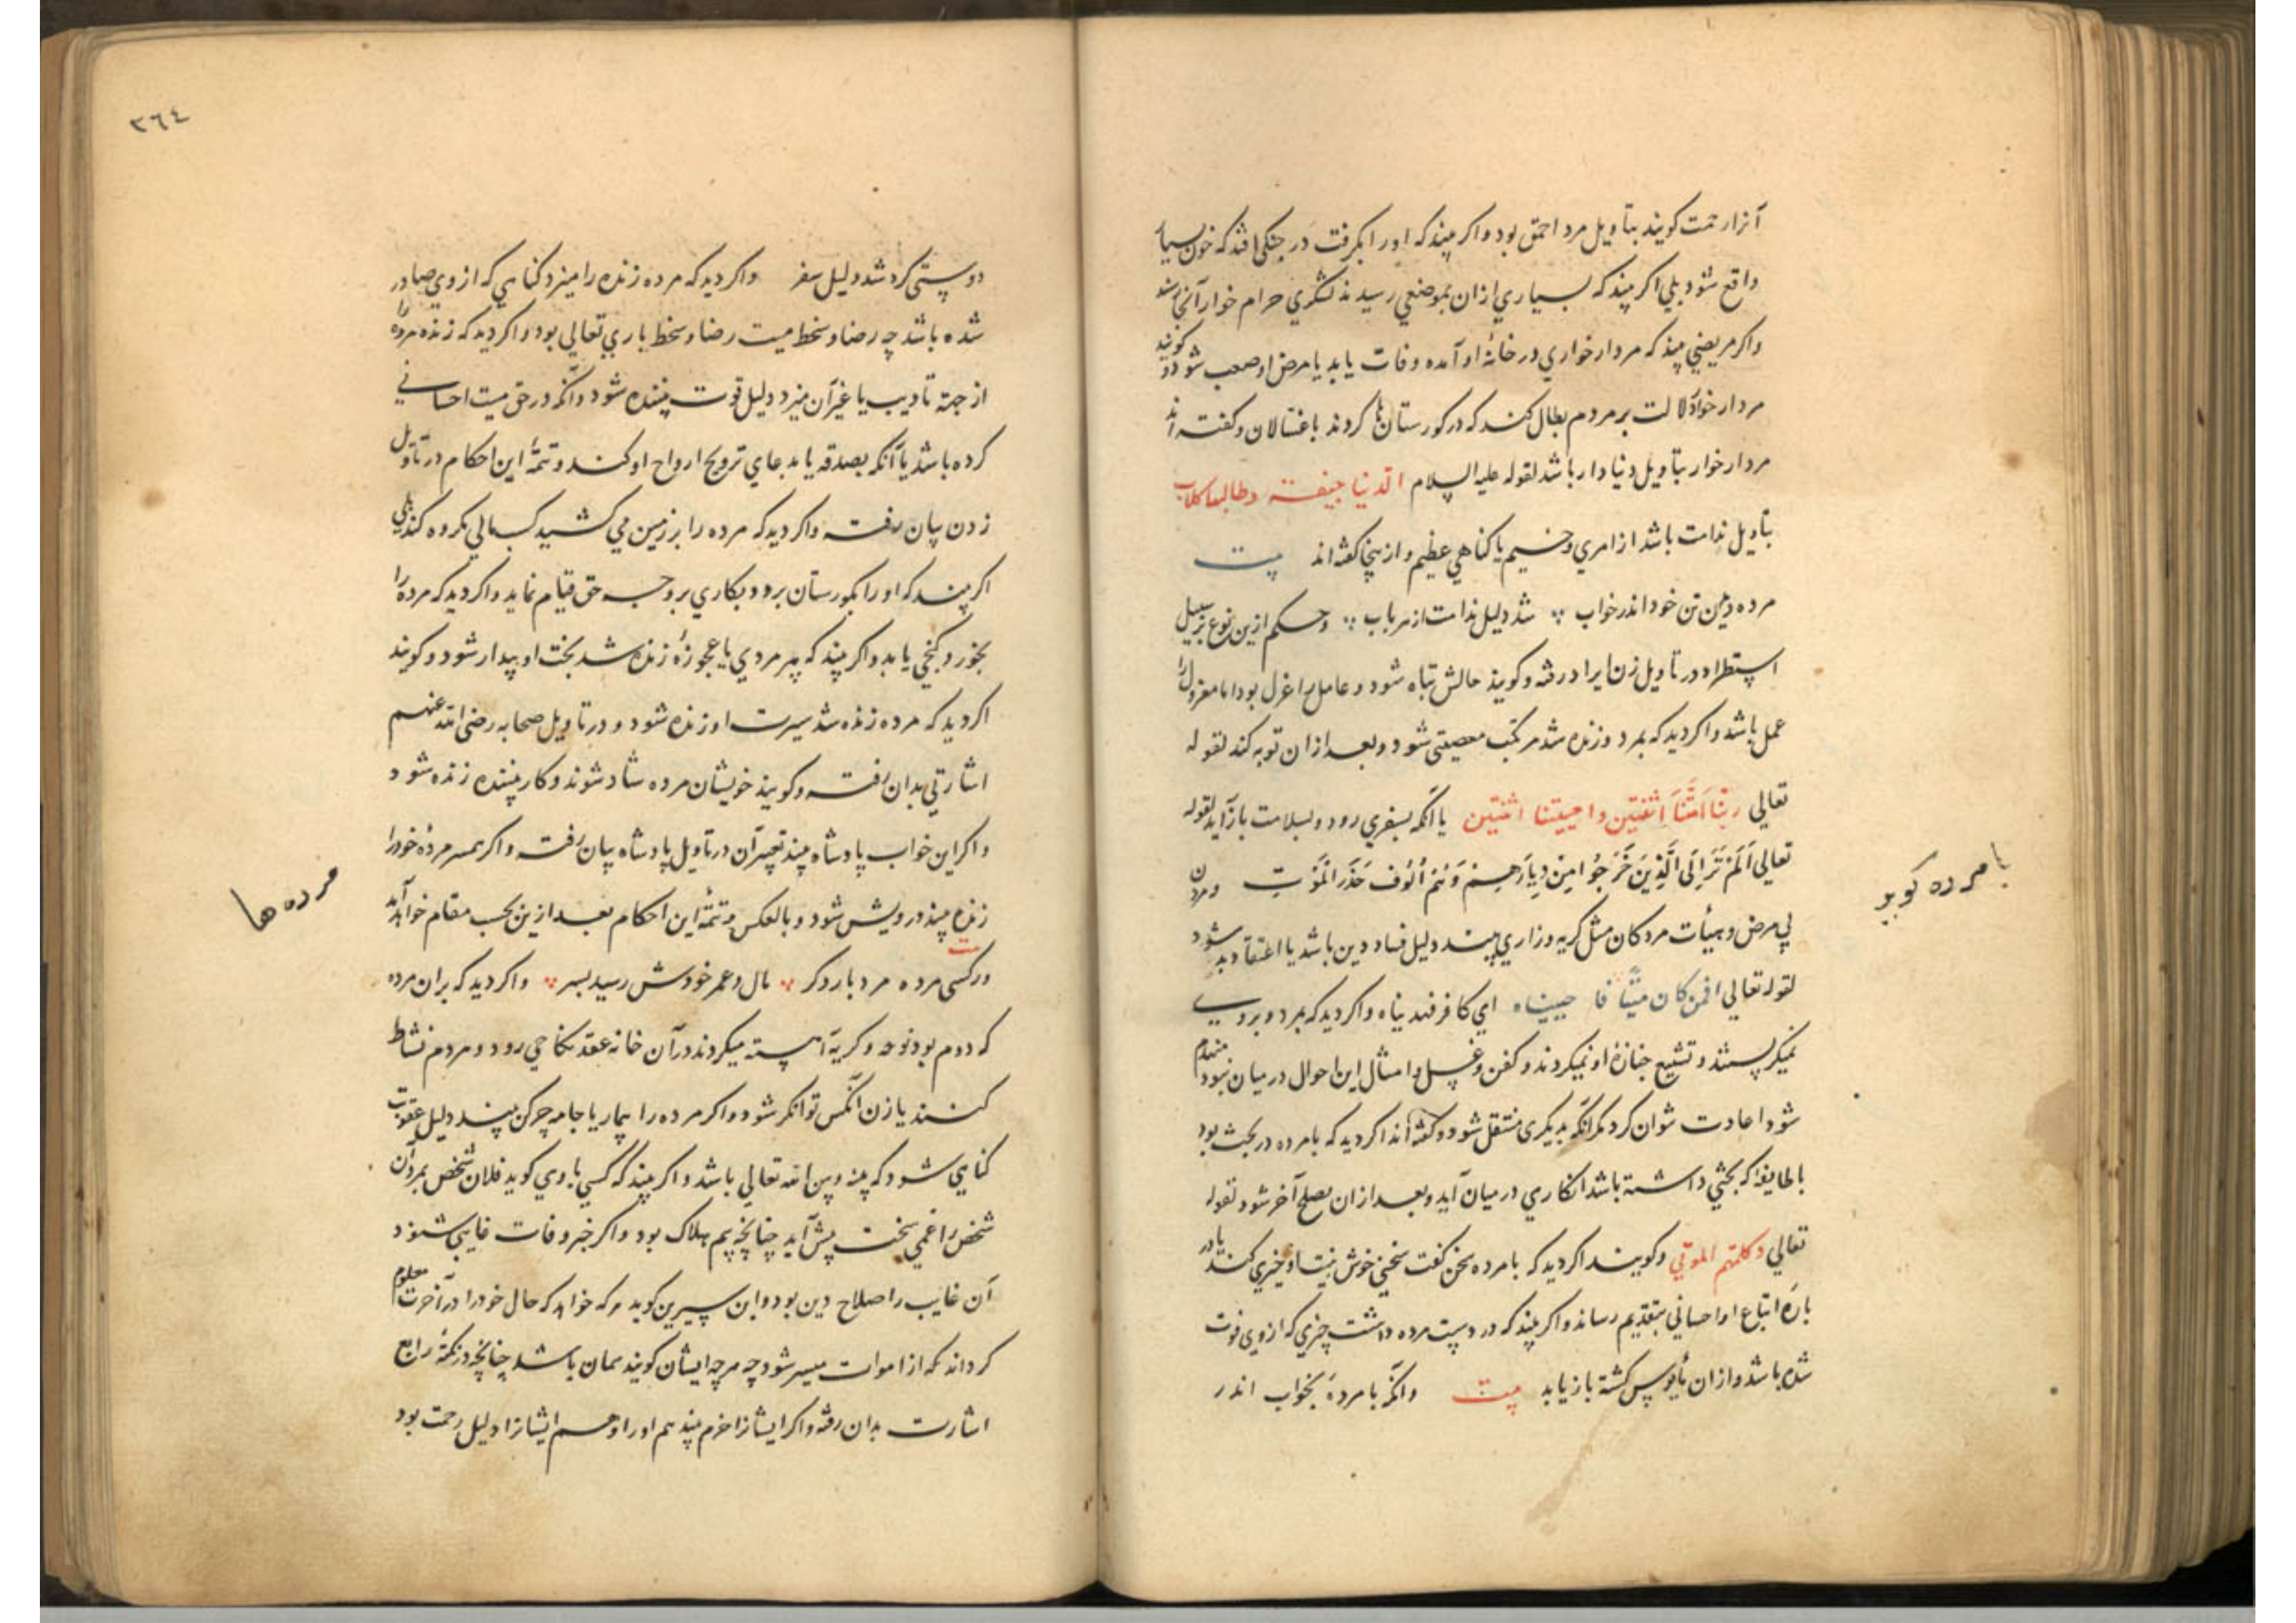 آنرا رحمت کویند بتأویل مرد احمق بود واکر بیند که او را بکرفت در جنکی افتد که خون بسیار
واقع شود بلي اکر بیند که بسیاري ازان بموضعي رسیدند لشکري حرام خوار آنجا رسند
واکر مریضي بیند که مردار خواري در خانۀ او آمده وفات یابد یا مرض او صعب شود و کویند
مردار خوار دلالت بر مردم بطال کند که در کورستان ها کردند با غسالان وکفته اند
مردار خوار بتأویل دنیا دار باشد لقوله علیه السلام الدنیا جیفته وطالبها کلاب
بتأویل ندامت باشد از امري وخیم یا کناهي عظیم وازینجا کفته اند بیت
مرده دیدن تن خود اندر خواب شد دلیل ندامت از هر باب وحکم ازین نوع بر سبیل
استطراد در تأویل زن ایراد رفته وکویند حالش تباه شود وعامل را عزل بود اما معزول را
عمل باشد واکر دید که بمرد وزنده شد مرتکب معصیتی شود وبعد ازان توبه کند لقوله
تعالي ربنا امتنا اثنتین واحییتنا اثنتین یا آنکه بسفري رود وبسلامت بازآید لقوله
تعالي اَلَمْ تَرَ اِلَى الَّذِينَ خَرَجُوا مِن دِيَارِهِمْ وَهُمْ اُلُوفٌ حَذَرَ الْمَوْتِ ومردن
بي مرض وهیأت مردکان مثل کریه وزاري بیند دلیل فساد دین باشد یا اعتقاد بد شود
لقوله تعالي افمن کان میتًا فا حییناه اي کافر فهدیناه واکر دید که بمرد وبروي
نمیکریستند وتشییع جنازۀ او نمیکردند وکفن وغسل وامثال این احوال در میان نبود منهدم
شود اعادت نتوان کرد مکر آنکه بدیکری منتقل شود وکفته اند اکر دید که با مرده در بحث بود
با طایفۀ که بحثي داشته باشد انکاري در میان آید وبعد ازان بصلح آخر شود لقوله
تعالي وکلمهم الموتي وکویند اکر دید که با مرده سخن کفت سخني خوش نیت او خیري کند یا در
بارۀ اتباع او احساني بتقدیم رساند واکر بیند که در دست مرده داشت چیزي که ازوي فوت
شده باشد وازان مأیوس کشته باز یابد بیت وانکه با مردۀ بخواب اندر
با مرده کوید
٣٦٤
دوستی کرد شد دلیل سفر واکر دید که مرده زنده را میزد کناهي که از وي صادر
شده باشد چه رضا وسخط میت رضا وسخط باري تعالي بود واکر دید که زنده مرده را
از جهة تادیب یا غیر آن میزد دلیل قوت بیننده شود وآنکه در حق میت احساني
کرده باشد یا آنکه بصدقه یا بدعاي ترویح ارواح او کند وتتمۀ این احکام در تأویل
زدن بیان رفت واکر دید که مرده را بر زمین مي کشید کسب مالي مکروه کند بلي
اکر بیند که او را بکورستان برد وبکاري بروجه حق قیام نماید واکر دید که مرده را
بخورد کنجي یابد واکر بیند که پیر مردي یا عجوزۀ زنده شد بخت او بیدار شود وکویند
اکر دید که مرده زنده شد سیرت او زنده شود ودر تأویل صحابه رضی الله عنهم
اشارتي بدان رفت وکویند خویشان مرده شاد شوند وکار بیننده زنده شود
واکر این خواب پادشاه بیند تعبیر آن در تأویل پادشاه بیان رفت واکر همسر مردۀ خود را
زنده بیند درویش شود وبالعکس وتتمۀ این احکام بعد ازین بحسب مقام خواهد آمد
ورکسی مرده مرد بار دکر مال وعمر خودش رسید بسر واکر دید که بران مرده
که دوم بود نوحه وکریۀ آهسته میکردند در آن خانه عقد نکاحي رود ومردم نشاط
کنند یا زن آنکس توانکر شود واکر مرده را بیمار یا جامه چرکن بیند دلیل عقوبت
کناهي شود که بینه وبین الله تعالي باشد واکر بیند که کسي با وي کوید فلان شخص بمرد آن
شخص را غمي سخت پیش آید چنانچه بیم هلاک بود واکر خبر وفات غایبي شنود
آن غایب را صلاح دین بود وابن سیرین کوید هر که خواهد که حال خود را در آخرت معلوم
کرداند که از اموات میسر شود چه هر چه ایشان کویند همان باشد چنانچه در نکتۀ رابع
اشارت بدان رفته واکر ایشانرا خرم بیند هم او را وهم ایشانرا دلیل رحمت بود
مرده ها